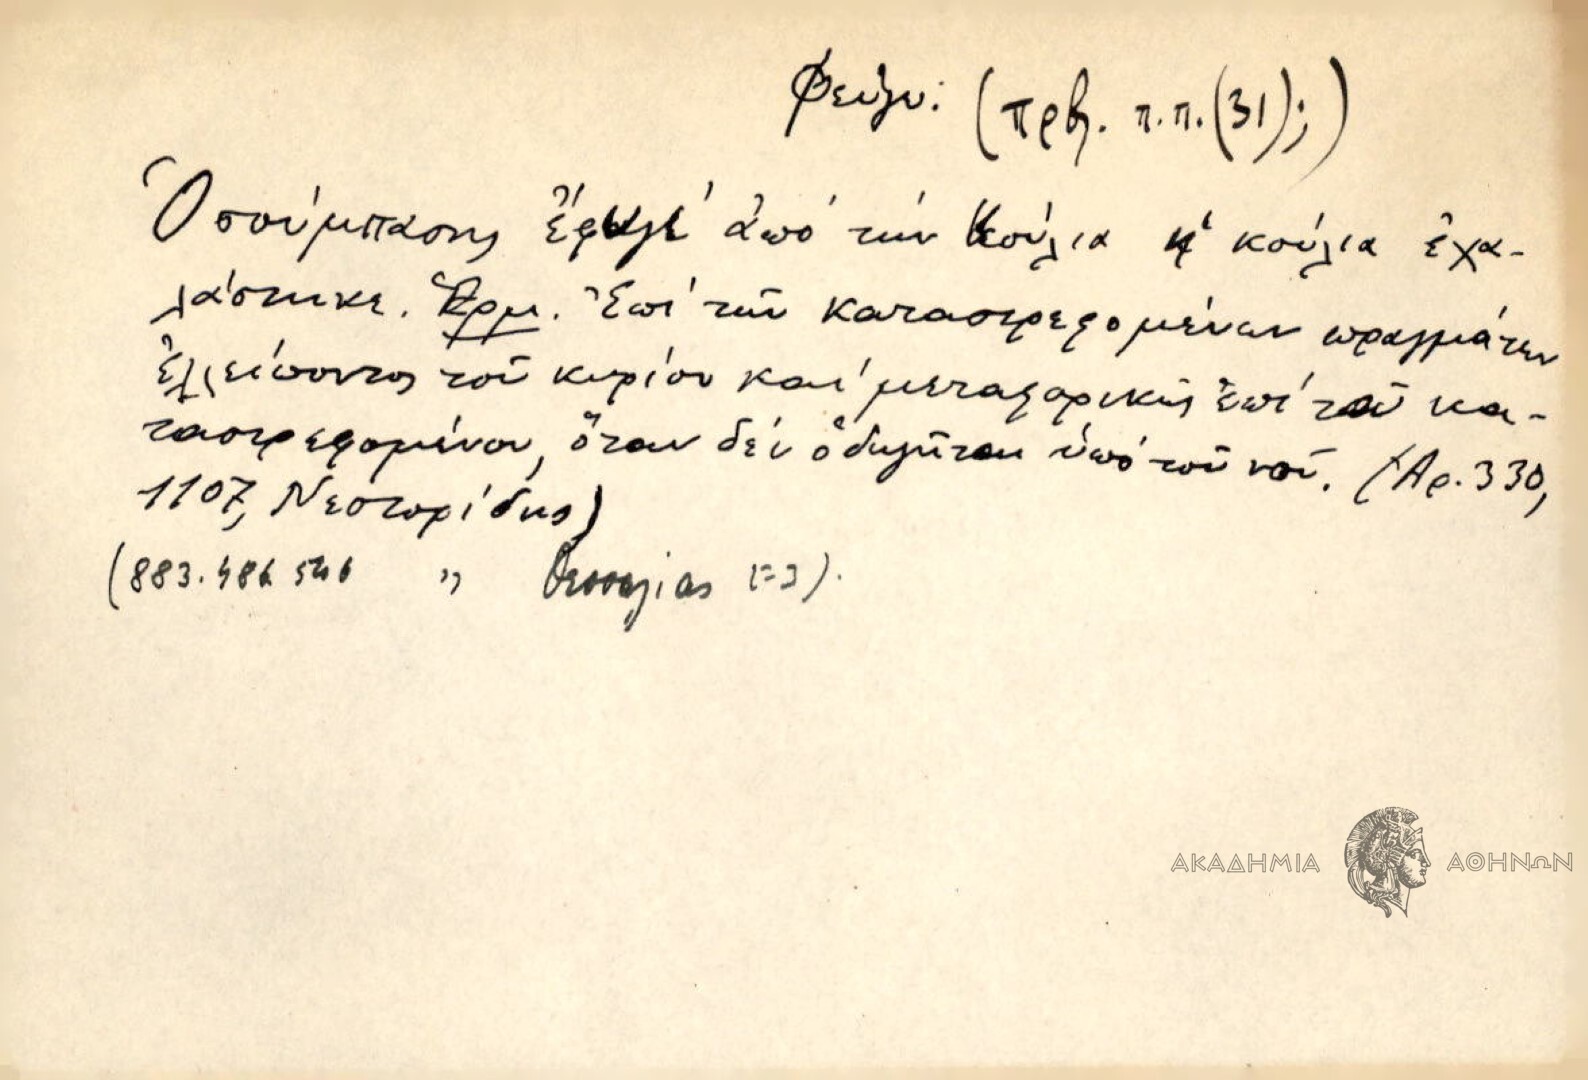 Φεύγω: (πρβ. π.π. (31);)
Ὁ σούμπασης ἔφυγε ἀπό τήν κούλια κι' κούλια ἐχα-
λάστηκε. Ἑρμ. Ἐπί τῶν καταστρεφομένων πραγμάτων
ἐλλείποντος τοῦ κυρίου καί μεταφορικῶς ἐπί τοῦ κα-
ταστρεφομένου, ὅταν δέν ὁδηγῆται ὑπό τοῦ νοῦ. (Ἀρ. 330,
1107, Νεστορίδης)
(883. 486 546 " Θεσσαλίας [=])
ΑΚΑΔΗΜΙΑ ΑΘΗΝΩΝ